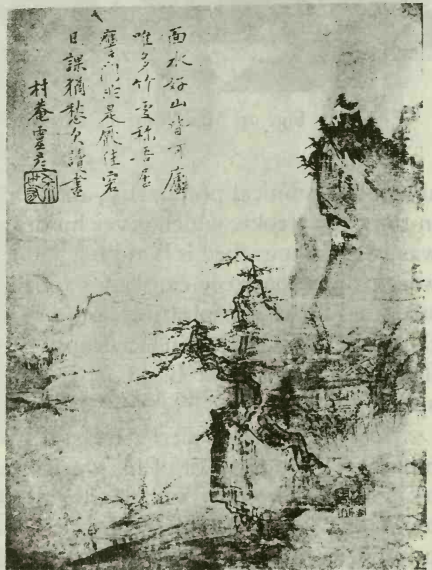 面水好山皆可廬
唯多竹處称吾居
門非是厭佳客
日課猶愁欠讀書
村菴靈彦